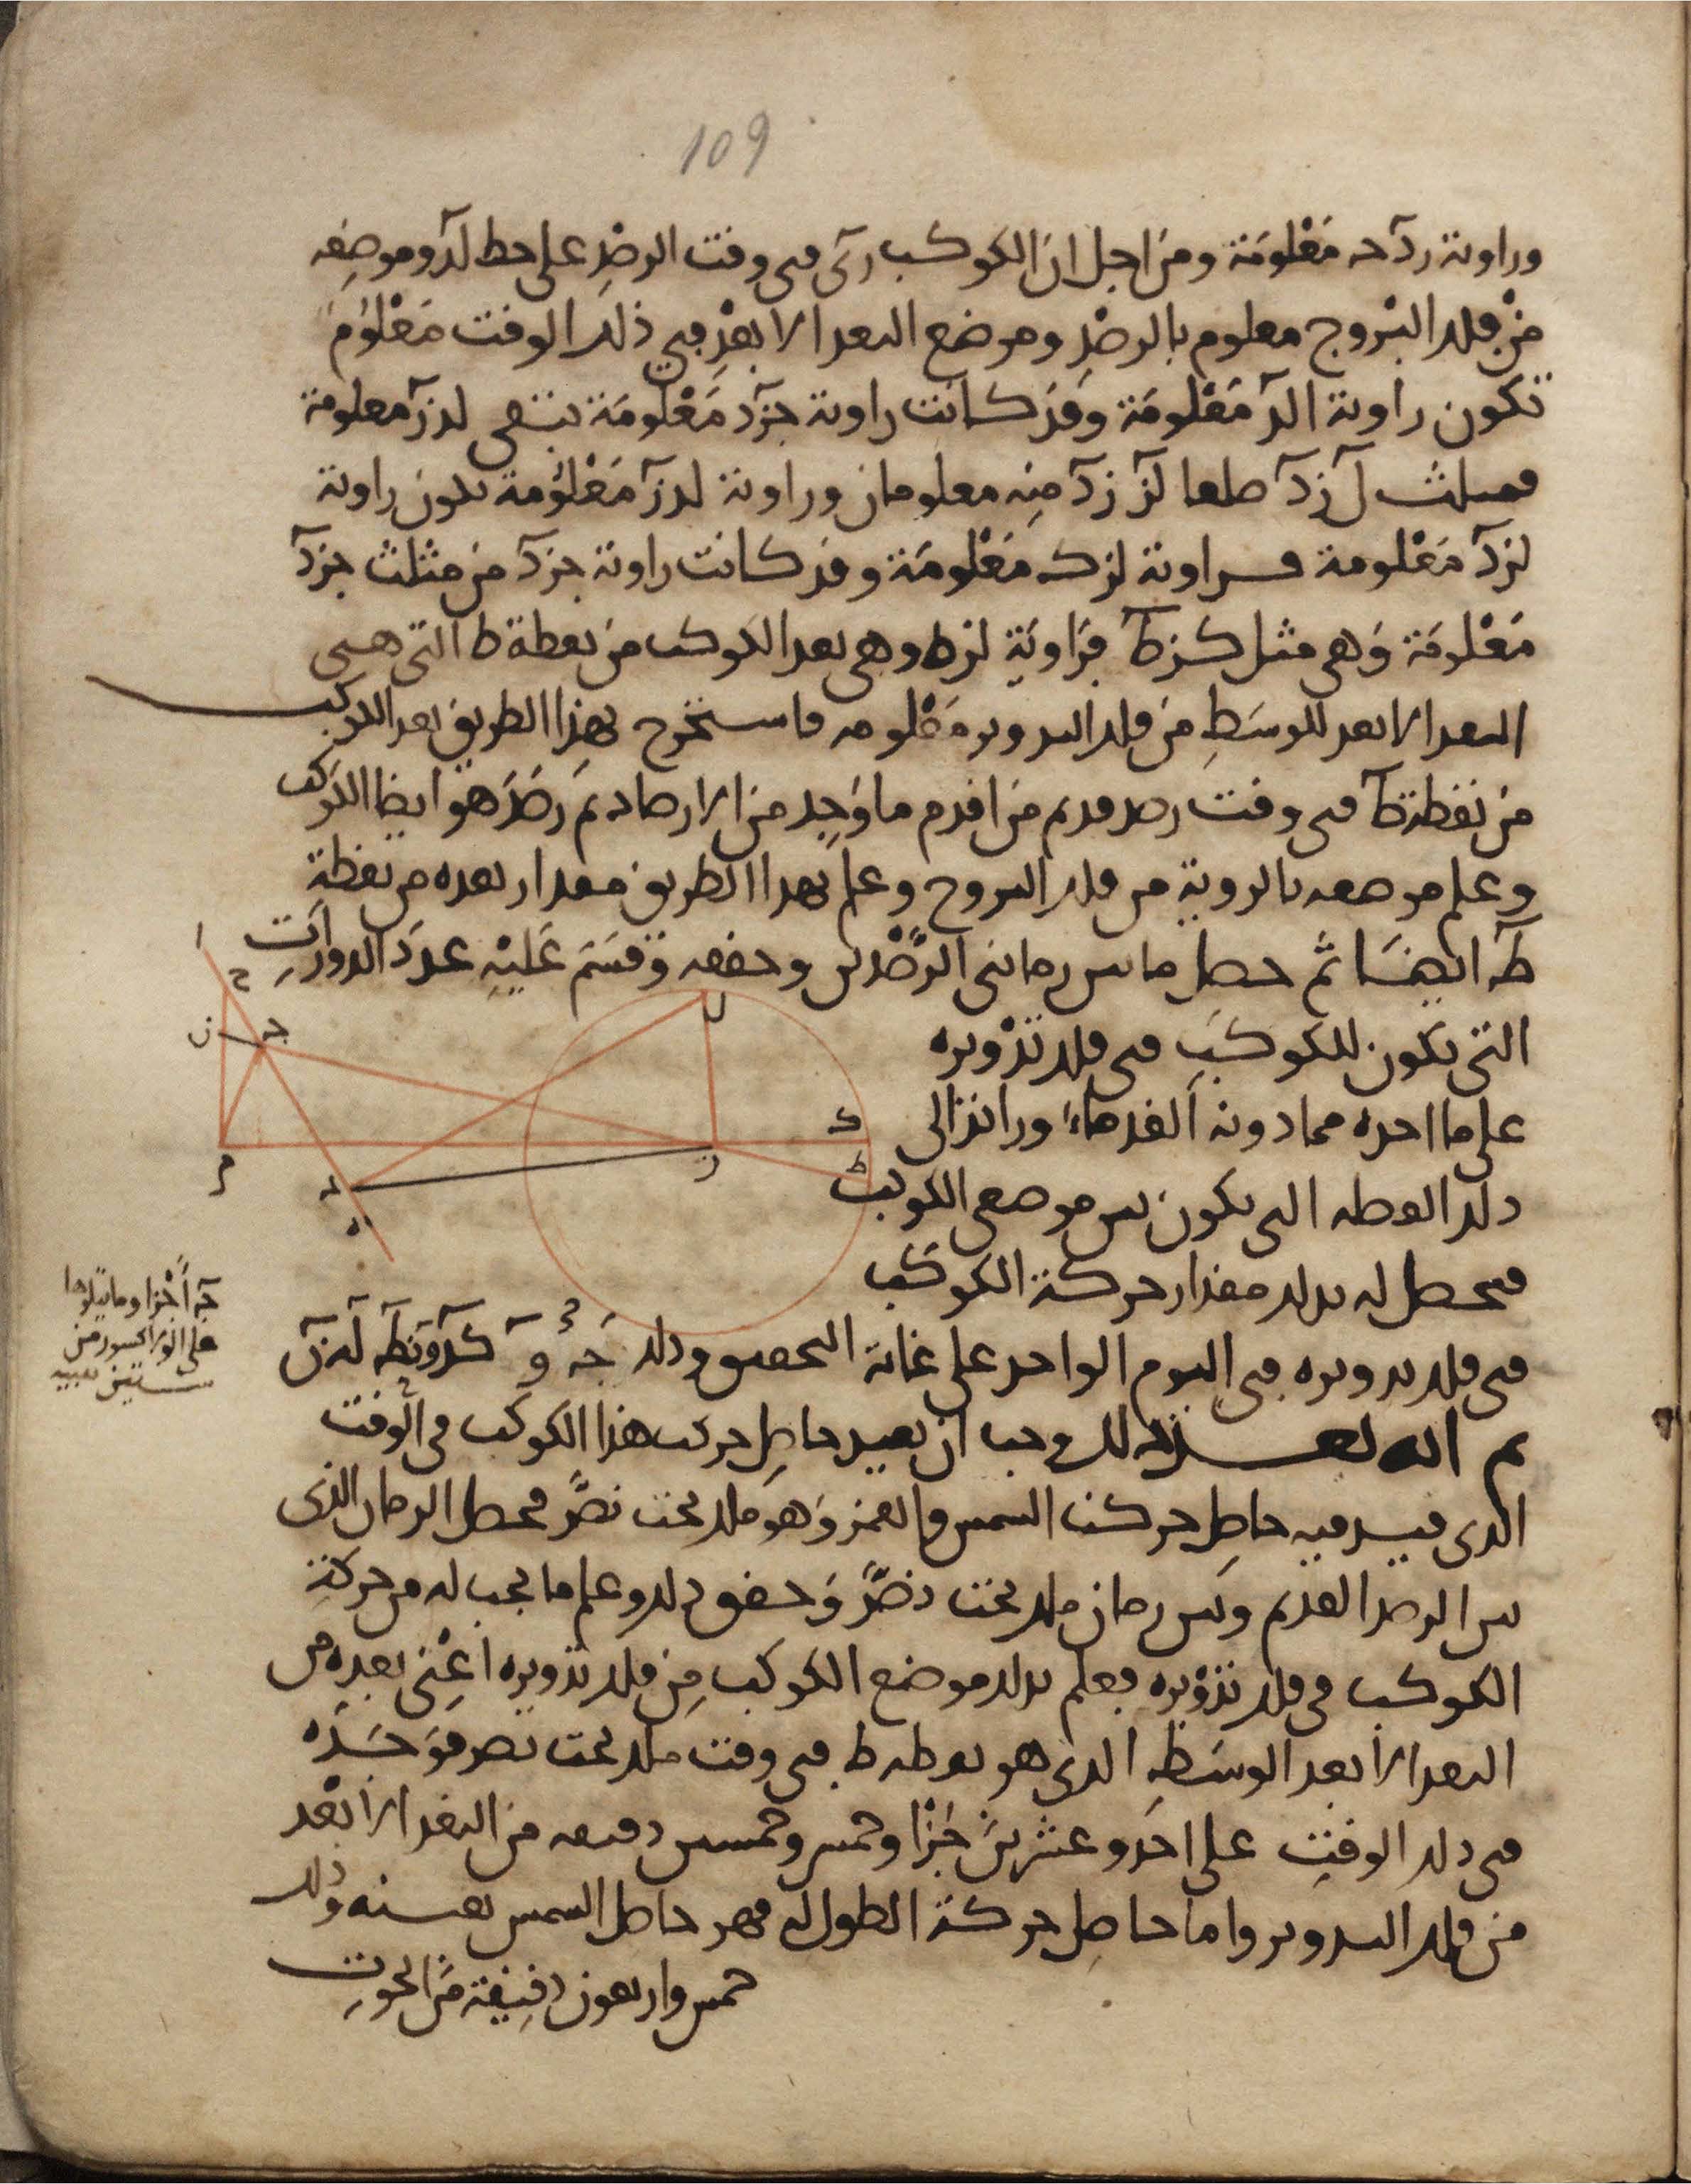 109
وزاوية زد‌ح معلومة ومن اجل ان الكوكب رئي في وقت الرصد على خط لد وموضعه
من فلك البروج معلوم بالرصد وموضع البعد الابعد في ذلك الوقت معلوم
تكون زاوية الد معلومة وقد كانت زاوية جزد معلومة تبقى لدز معلومة
فمثلث ل زد ضلعا لز زد منه معلومان وزاوية لدز معلومة تكون زاوية
لزد معلومة فزاوية لزك معلومة وقد كانت زاوية جزد من مثلث جزد
معلومة وهي مثل كزط فزاوية لزط وهي بعد الكوكب من نقطة ط التي هي
البعد الابعد للوسط من فلك التدوير معلومه فاستخرج بهذا الطريق بعد الكوكب
من نقطة ط في وقت رصد قديم من اقدم ما وجد من الارصاد ثم رصد هو ايضا الكوكب
وعلم موضعه بالروية من فلك البروج وعلم بهذا الطريق مقدار بعده من نقطة
ط ايضا ثم حصل ما بين زماني الرصدين وحققه وقسم عليه عدد الدورات
ا
ح
ن
ج
ل
التي تكون للكوكب في فلك تدويره
على ما اخذه مما دونه القدماء وزاد الى
ك
م
د
ه
ز
ط
ذلك القطعه التي تكون بين موضعي الكوكب
فحصل له بذلك مقدار حركة الكوكب
في فلك تدويره في اليوم الواحد على غاية التحقيق وذلك
جه اجزا وما يتلوها
على الولا كسور من
ستين نسبه
ثم انه بعد ذلك وجب ان نصير حاصل حركت هذا الكوكب في الوقت
الذي قيد فيه حاصل حركت الشمس والقمر وهو ملك بخت نصر فحصل الزمان الذي
بين الرصد القديم وبين زمان ملك بخت نصر وحقق ذلك وعلم ما يجب له من حركة
الكوكب في فلك تدويره فعلم بذلك موضع الكوكب من فلك تدويره اعني بعده من
البعد الابعد الوسط الذي هو نقطه ط في وقت ملك بخت نصر فوجده
في ذلك الوقت على احد وعشرين جزا وخمس وخمسين دقيقه من البعد الابعد
من فلك التدوير واما حاصل حركة الطول له فهو حاصل الشمس بعينه وذلك
خمس واربعون دقيقة من الحوت